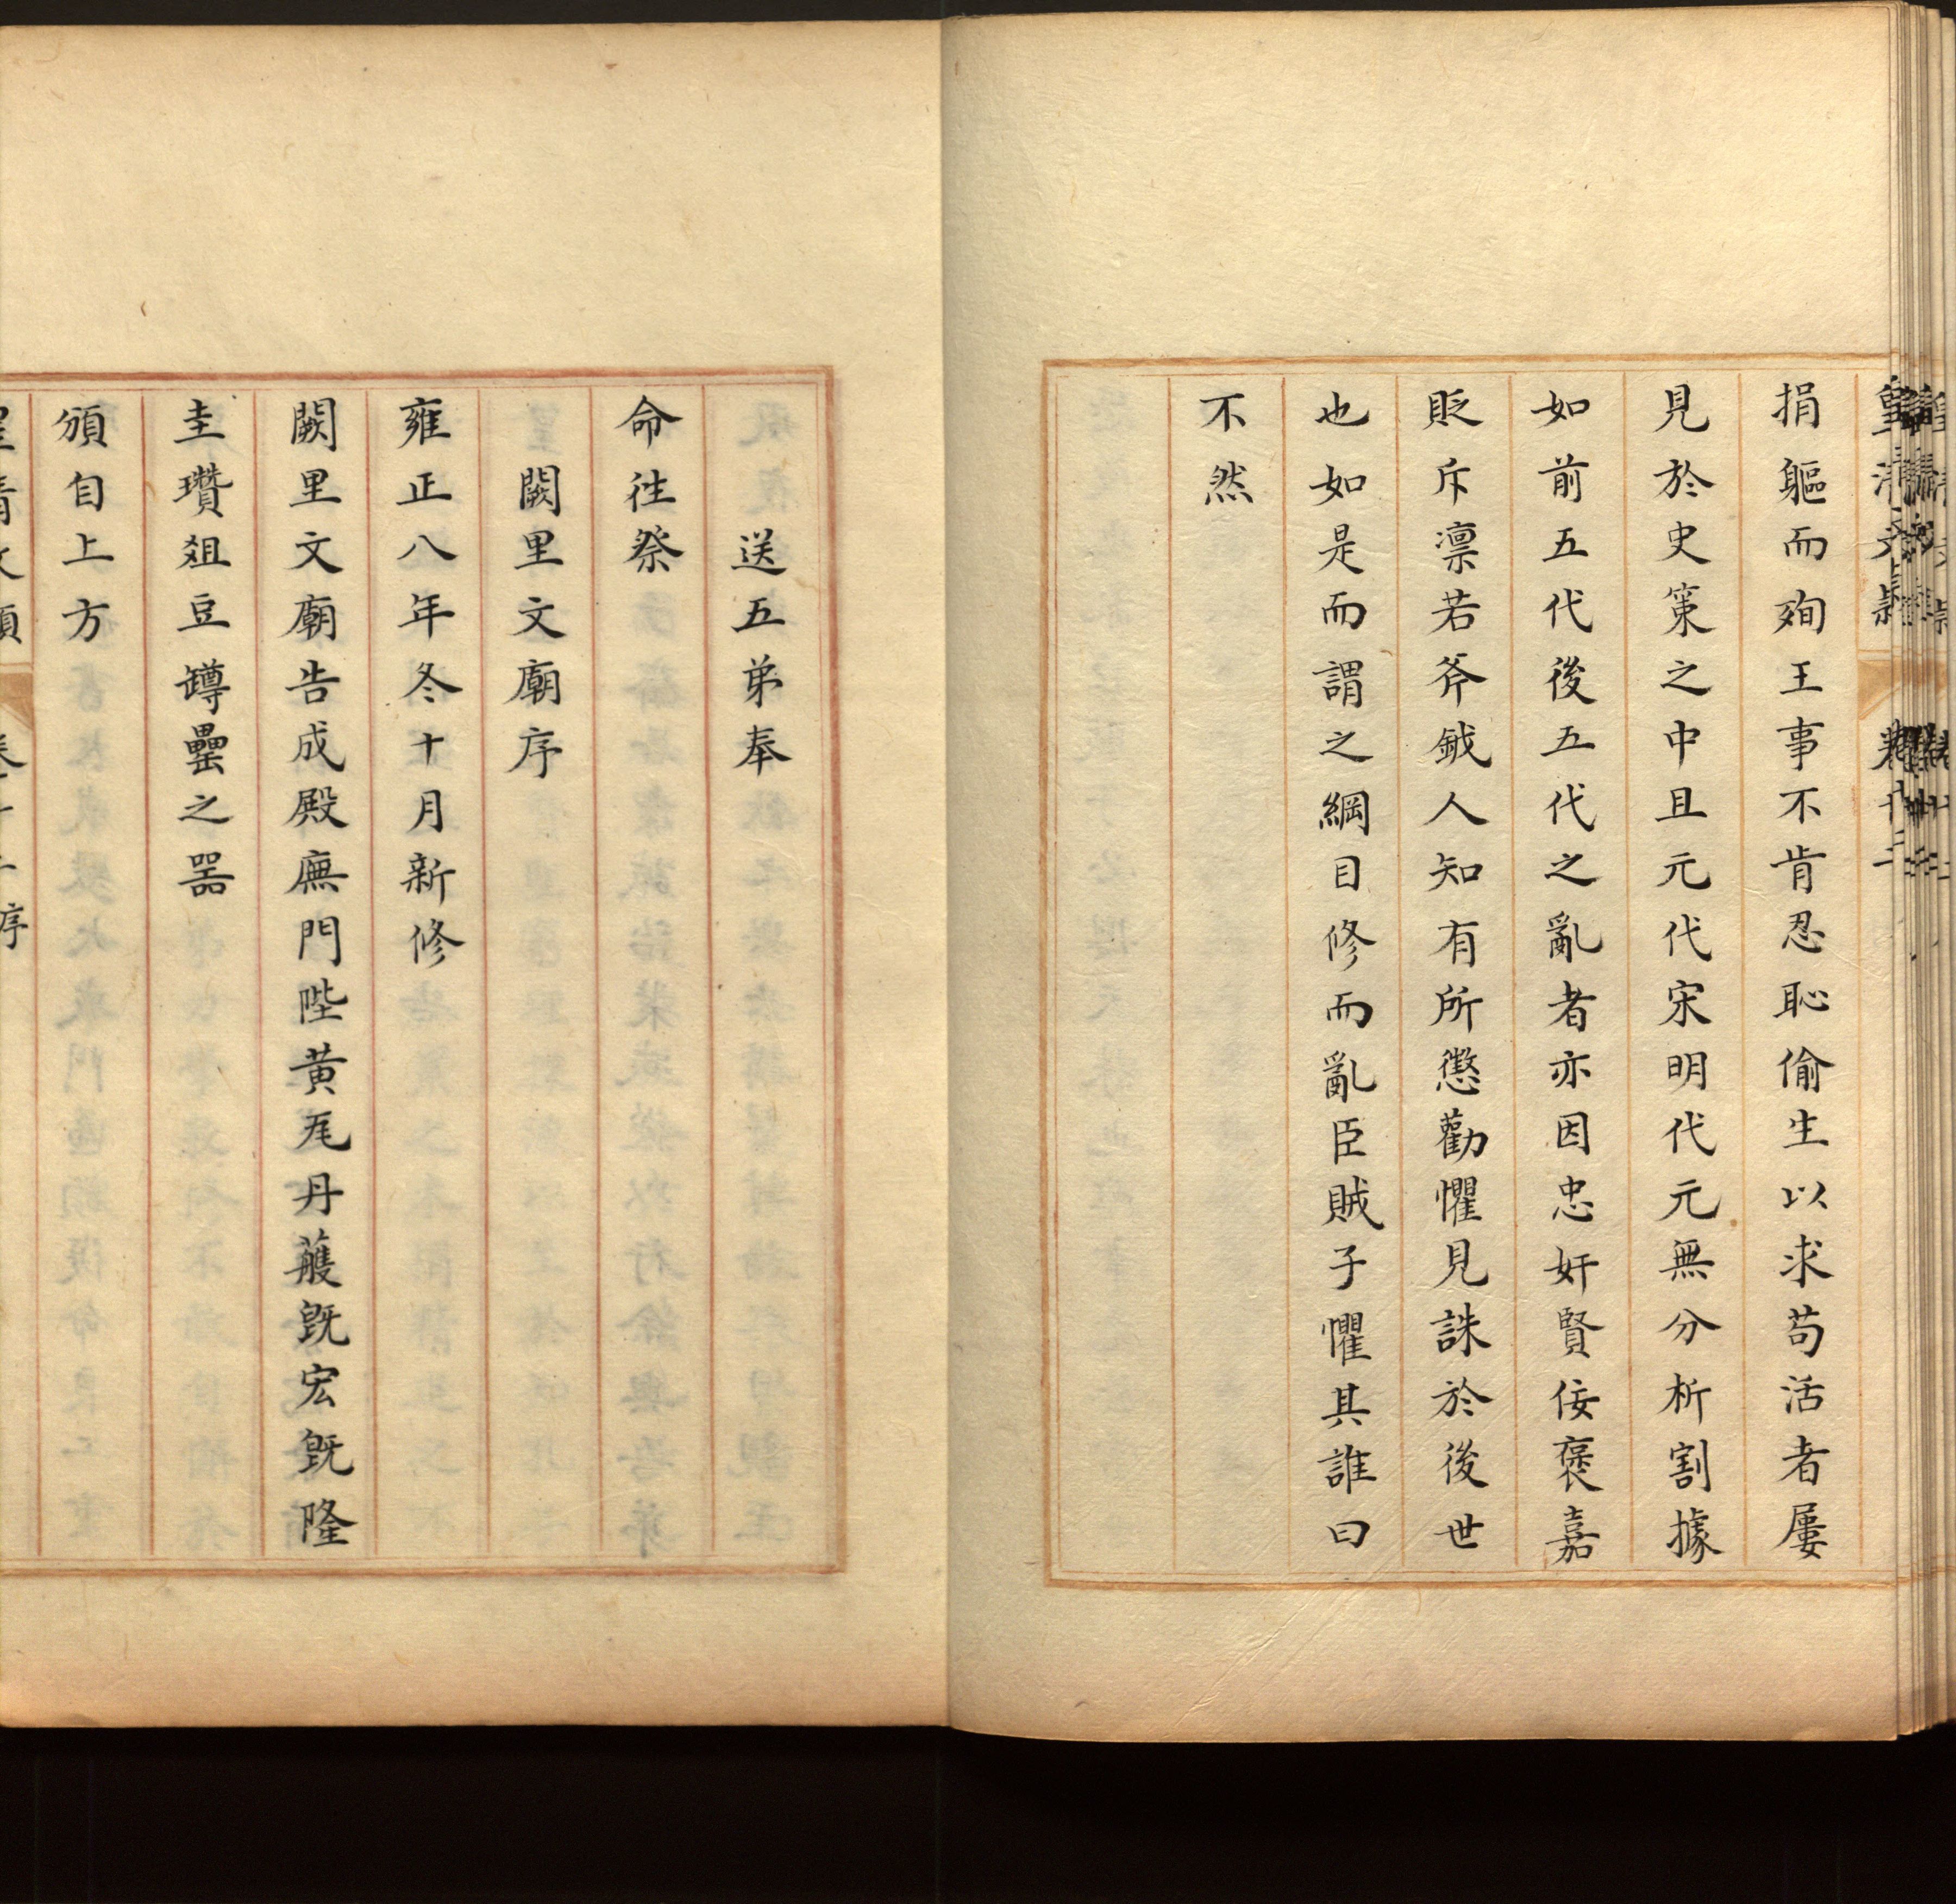 捐軀而殉王事不肯忍恥偷生以求苟活者屢
見於史策之中且元代宋明代元無分析割據
如前五代後五代之亂者亦因忠奸賢佞褒嘉
貶斥凛若斧鉞人知有所懲勸懼見誅於後世
也如是而謂之綱目修而亂臣賊子懼其誰曰
不然
送五弟奉
命往祭
闕里文廟序
雍正八年冬十月新修
闕里文廟告成殿廡門陛黃瓦丹雘既宏既隆
圭瓚俎豆罇罍之器
頒自上方